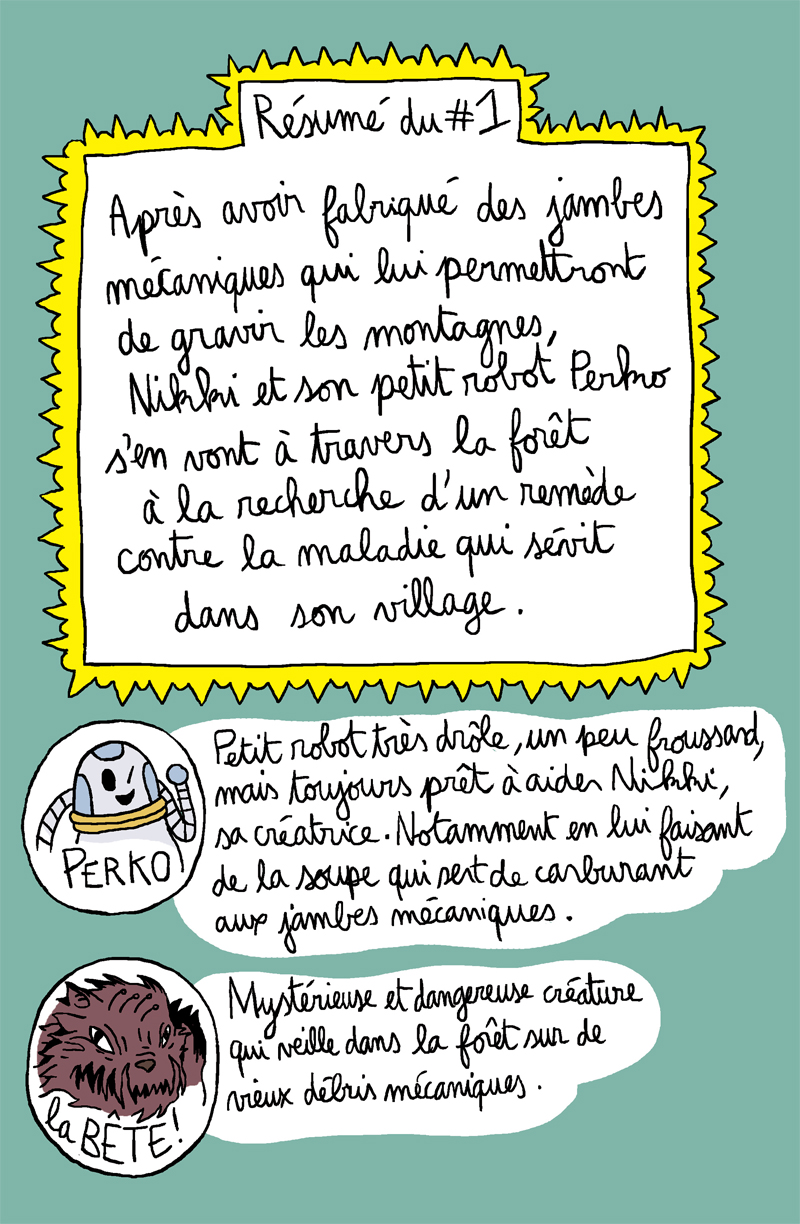 Résumé du #1
Après avoir fabriqué des jambes
mécaniques qui lui permettront
de gravir les montagnes,
Nikki et son petit robot Perko
s'en vont à travers la forêt
à la recherche d'un remède
contre la maladie qui sévit
dans son village.
Petit robot très drôle, un peu froussard,
mais toujours prêt à aider Nikki,
sa créatrice. Notamment en lui faisant
de la soupe qui sert de carburant
aux jambes mécaniques.
PERKO
Mystérieuse et dangereuse créature
qui veille dans la forêt sur de
vieux débris mécaniques.
la BÊTE!